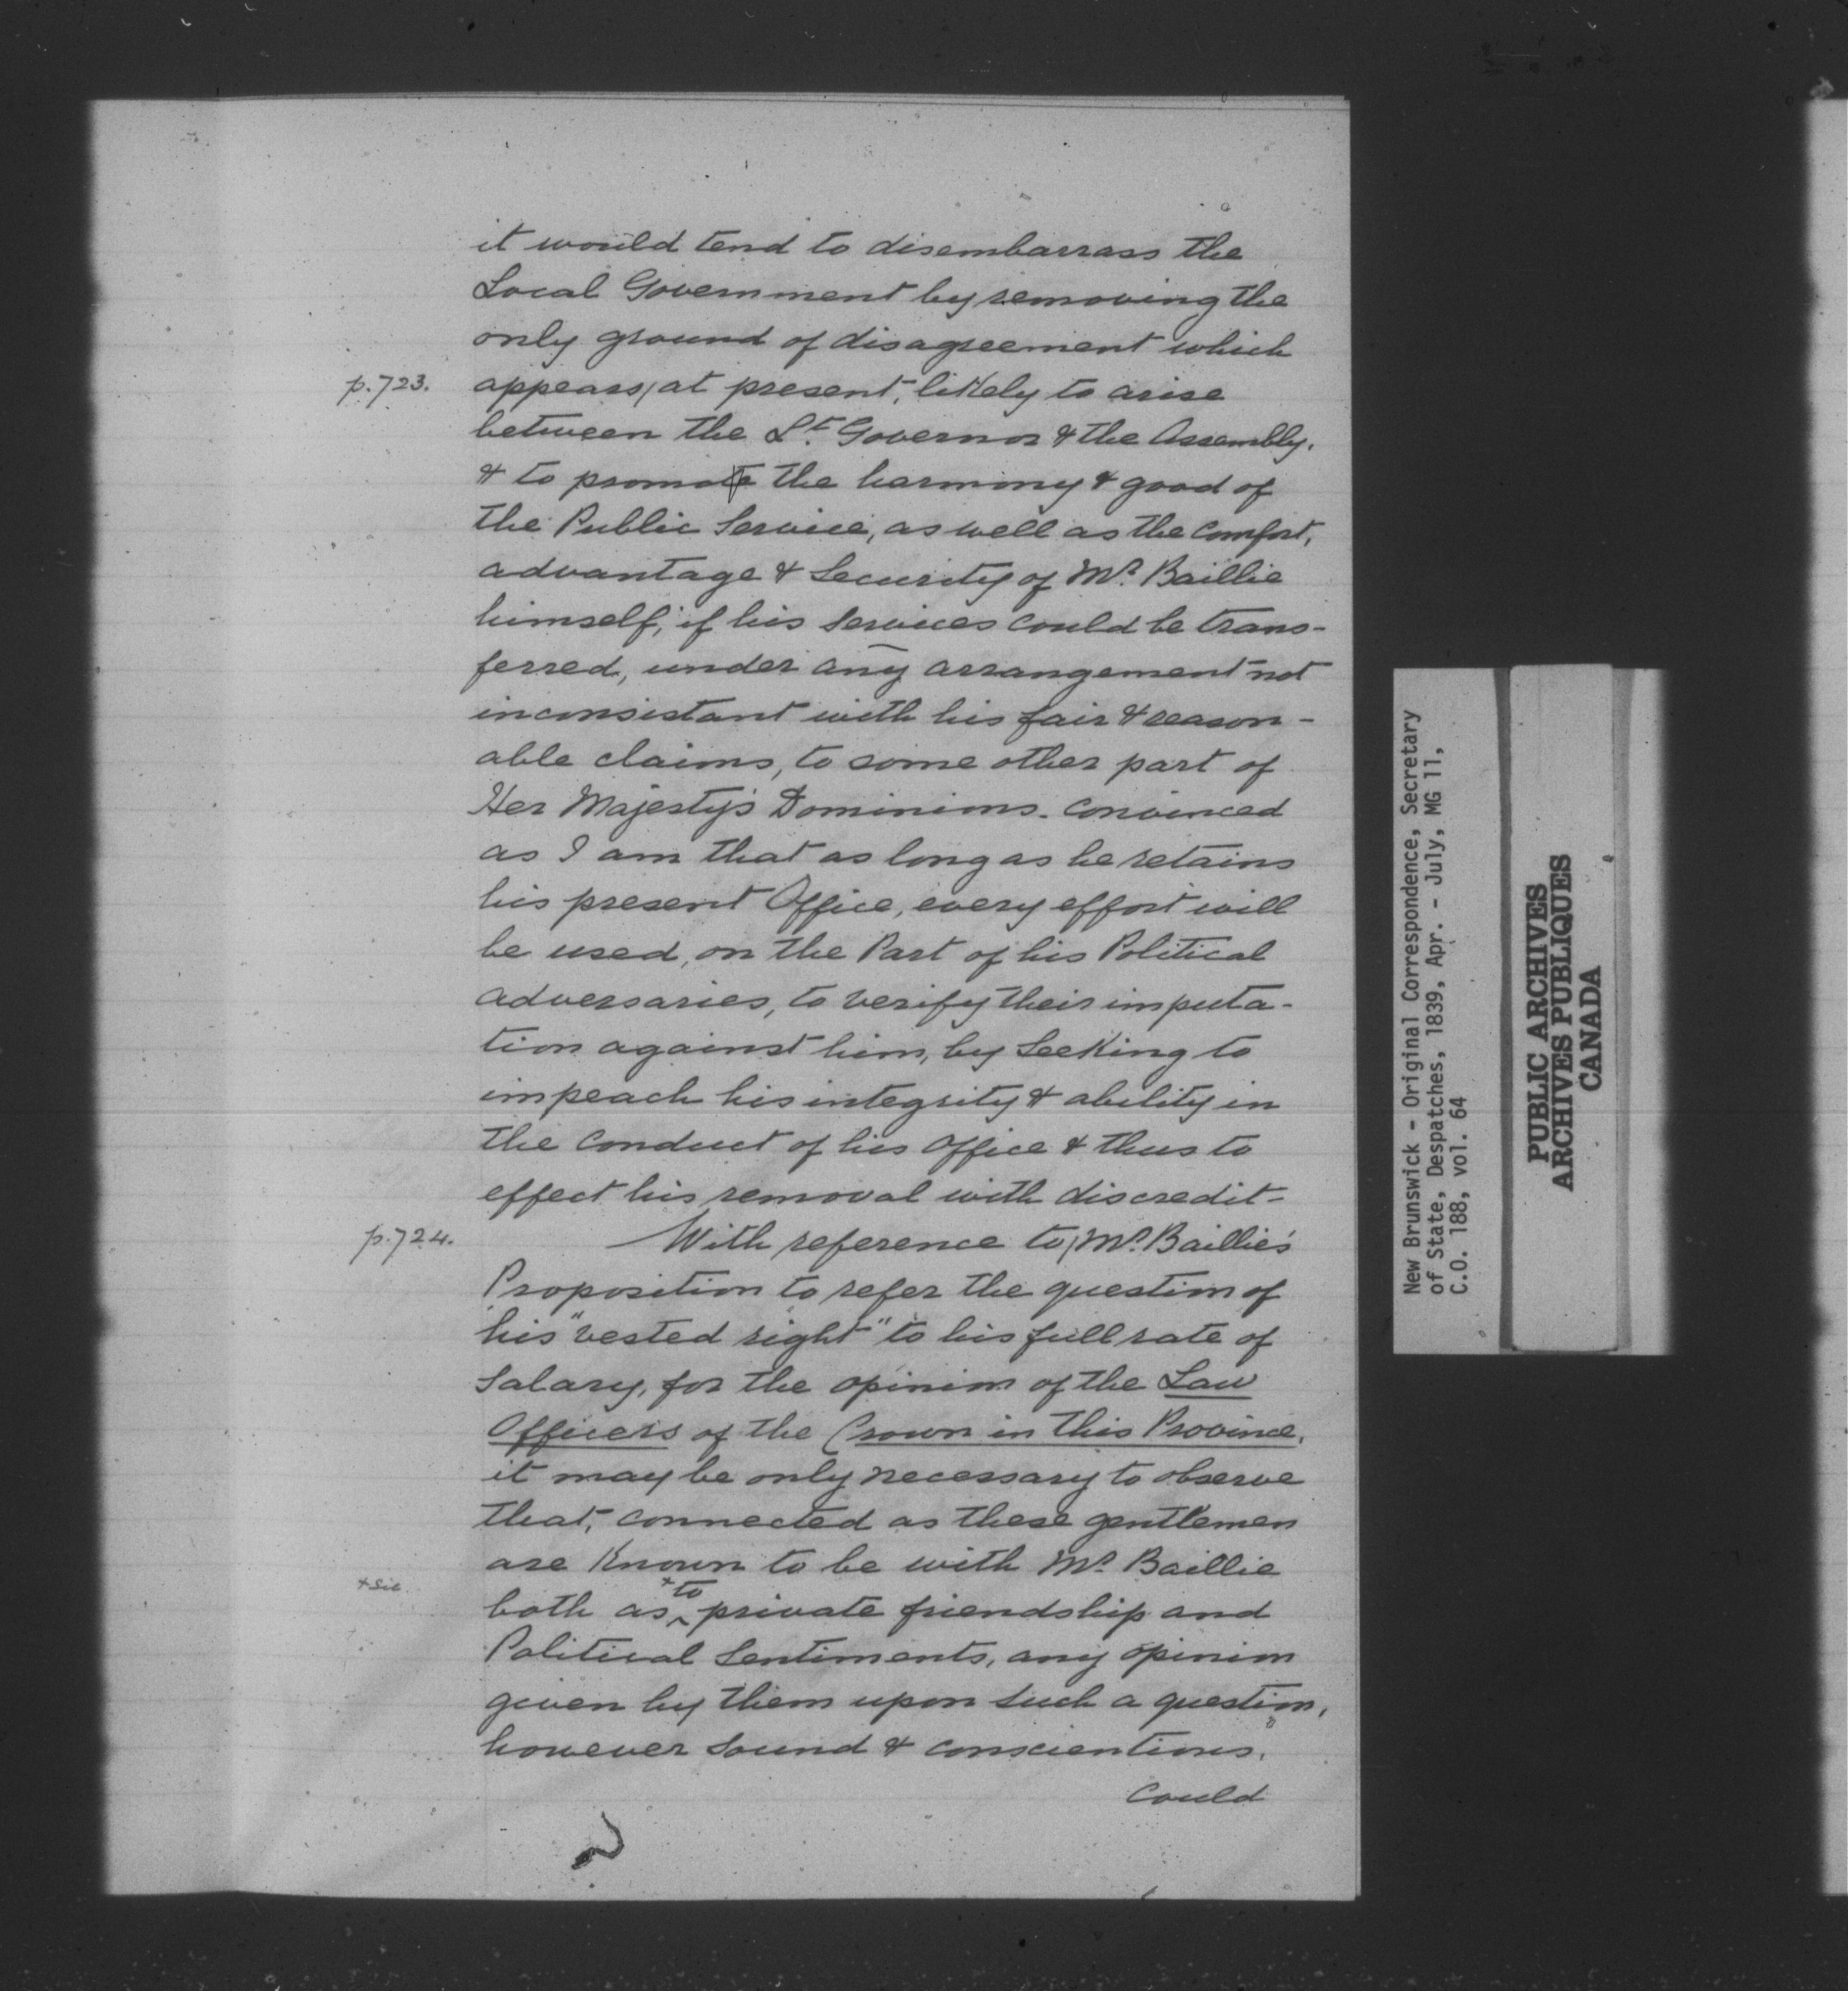 it would tend to disembarrass the
Local Government by removing the
only ground of disagreement which
p. 723. appears / at present, likely to arise
between the Lt. Governor & the Assembly,
& to promote the harmony & good of
the Public Service, as well as the comfort,
advantage & Security of Mr. Baillie
himself, if his services could be trans-
ferred, under any arrangement not
inconsistant with his fair & reason-
able claims, to some other part of
Her Majesty's Dominions. Convinced
as I am that as long as he retains
his present Office, every effort will
be used, on the Part of his Political
adversaries, to verify their imputa-
tion against him, by Seeking to
impeach his integrity & ability in
the Conduct of his Office & thus to
effect his removal with discredit-
p. 724. With reference to / Mr. Baillie's
Proposition to refer the question of
his "vested right" to his full rate of
Salary, for the opinion of the Law
Officers of the Crown in this Province,
it may be only necessary to observe
that, connected as these gentlemen
are Known to be with Mr. Baillie
+ sic. both as + to private friendship and
Political Sentiments, any opinion
given by them upon such a question,
however Sound & conscientious,
Could
New Brunswick - Original Correspondence, Secretary
of State, Despatches, 1839, Apr. - July, MG 11,
C.O. 188, vol. 64
PUBLIC ARCHIVES
ARCHIVES PUBLIQUES
CANADA